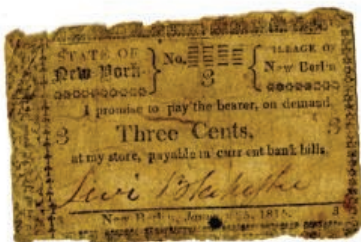 STATE OF
New York.
No.
3
ILLAGE OF
New Berlin
I promise to pay the bearer, on demand
3 Three Cents, 3
at my store, payable in current bank bills.
Levi
3 New Berlin, 1815. 3